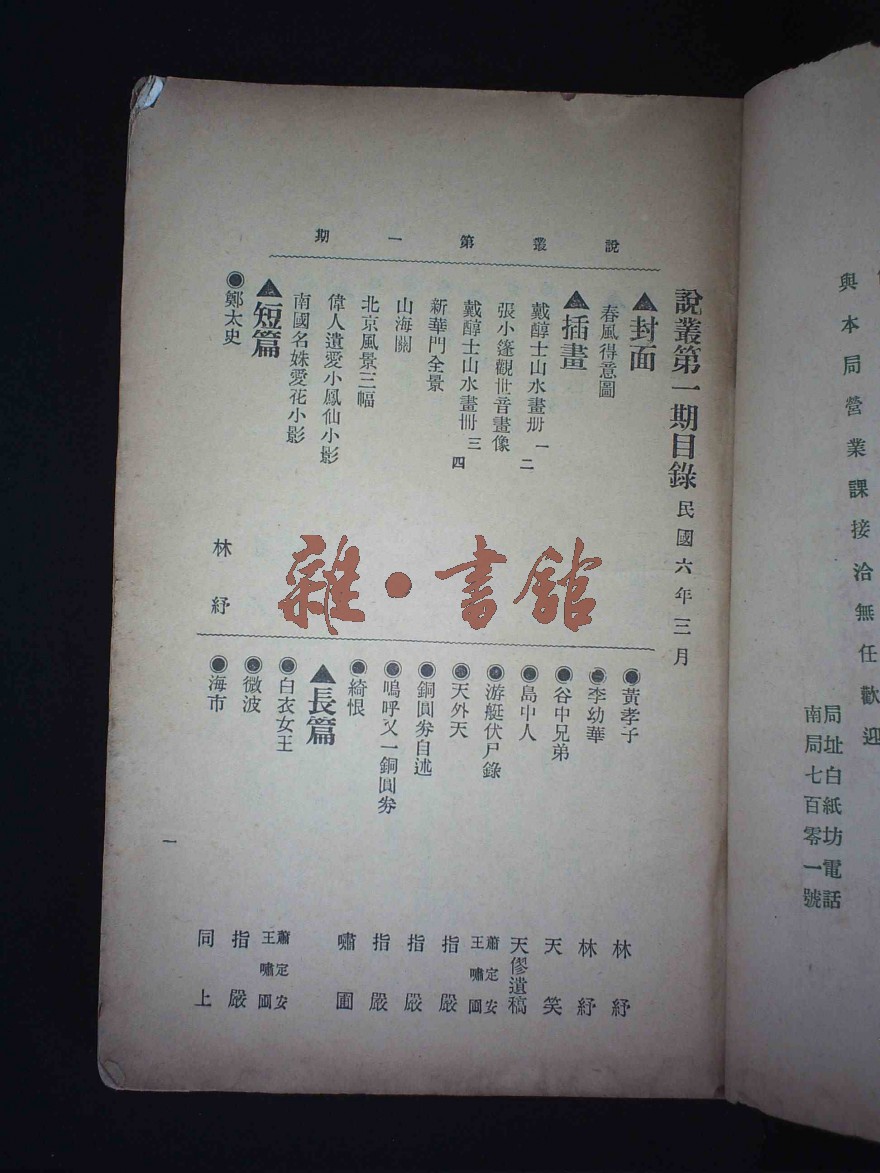 與本局營業課接洽無任歡迎
局址白紙坊電話
南局七百零一號
說叢第一期
說叢第一期目錄 民國六年三月
▲封面
春風得意圖
▲插畫
戴醇士山水畫册 一 二
張小蓬觀世音畫像
戴醇士山水畫冊 三 四
新華門全景
山海關
北京風景三幅
偉人遺愛小鳳仙小影
南國名姝愛花小影
▲短篇
◉鄭太史 林紓
◉黃孝子 林紓
◉李幼華 林紓
◉谷中兄弟 天笑
◉島中人 天僇遺稿
◉游艇伏尸錄 蕭定安 王嘯圃
◉天外天 指嚴
◉銅圓券自述 指嚴
◉嗚呼又一銅圓券 指嚴
◉綺恨 嘯圃
▲長篇
◉白衣女王 蕭定安 王嘯圃
◉微波 指嚴
◉海市 同上
一
雜·書館